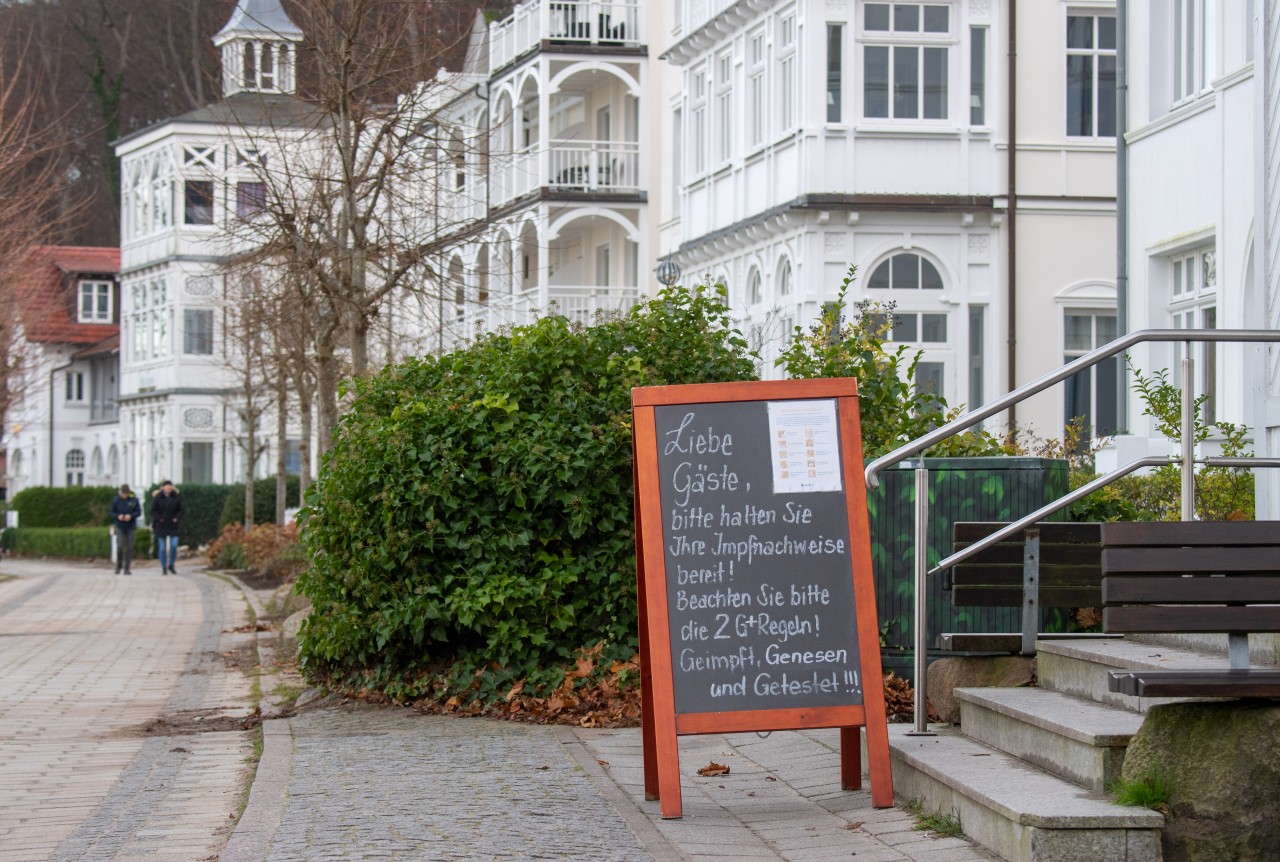 Liebe
Gäste,
bitte halten Sie
Ihre Impfnachweise
bereit!
Beachten Sie bitte
die 2 G+Regeln!
Geimpft, Genesen
und Getestet !!!